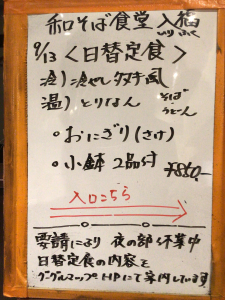 和そば食堂 入福
いりふく
9/13 <日替定食>
冷)冷やしタヌキ風
温)とりなん
そば
うどん
○おにぎり(さけ)
○小鉢 2品付
¥850.-
入口こちら
要請により 夜の部 休業中
日替定食の内容を
グーグルマップ、HPにて案内しています